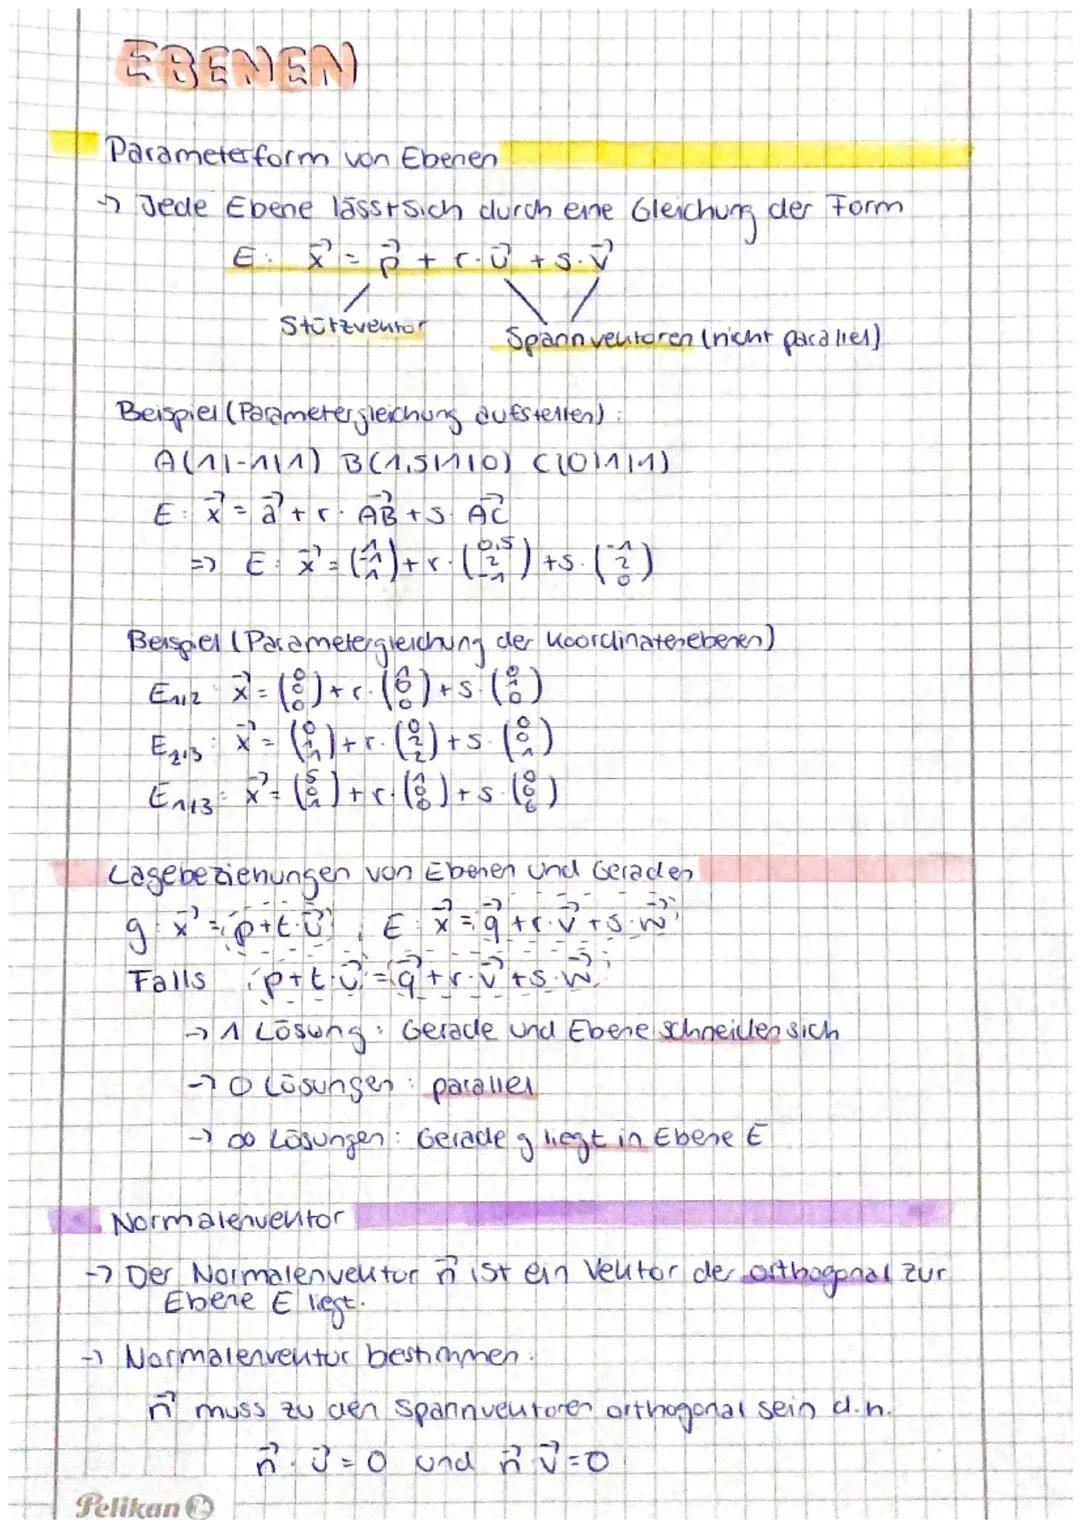 EBENEN
Parameterform von Ebenen
→ Jede Ebene lässt sich durch eine Gleichung der Form
E: x⃗ = p⃗ + r·u⃗ + s·v⃗
Stützvektor
Spannvektoren (nicht parallel)
Beispiel (Parametergleichung aufstellen):
A(1|-1|1) B(1,5|1|0) C(0|1|1)
E: x⃗ = a⃗ + r· AB⃗ + s· AC⃗
=> E: x⃗ = (1 -1 1) + r· (0,5 2 -1) + s· (-1 2 0)
Beispiel (Parametergleichung der Koordinatenebenen)
E₁,₂: x⃗ = (0 0 0) + r· (1 0 0) + s· (0 1 0)
E₂,₃: x⃗ = (0 1 1) + r· (0 2 2) + s· (0 0 1)
E₁,₃: x⃗ = (5 0 1) + r· (1 0 0) + s· (0 0 6)
Lagebeziehungen von Ebenen und Geraden
g: x⃗ = p + t·u⃗, E: x⃗ = q⃗ + r·v⃗ + s·w⃗
Falls p + t·u⃗ = q⃗ + r·v⃗ + s·w⃗
→ 1 Lösung: Gerade und Ebene schneiden sich
→ 0 Lösungen: parallel
→ ∞ Lösungen: Gerade g liegt in Ebene E
Normalenvektor
→ Der Normalenvektor n⃗ ist ein Vektor der orthogonal zur
Ebene E liegt.
→ Normalenvektor bestimmen:
n⃗ muss zu den Spannvektoren orthogonal sein d.h.
n⃗ · u⃗ = 0 und n⃗ · v⃗ = 0
Pelikan